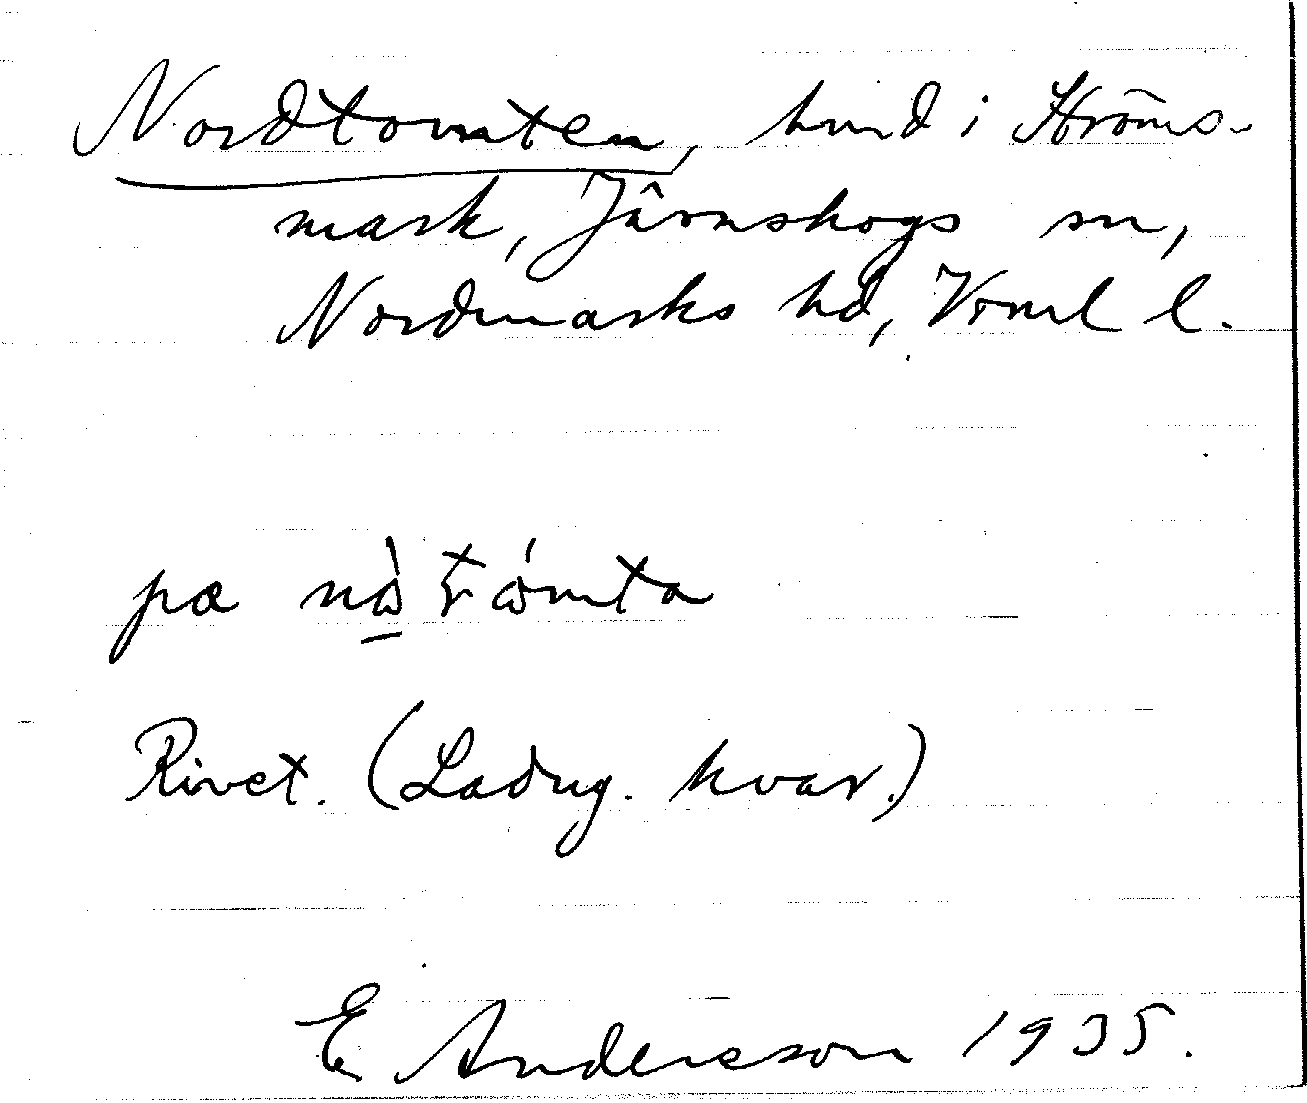 Nordtomten, hmd i Ströms-
mark, Järnskogs sn,
Nordmarks hd, Vrml l.
pæ
Rivet. (Ladug. kvar.)
E Andersson 1935.